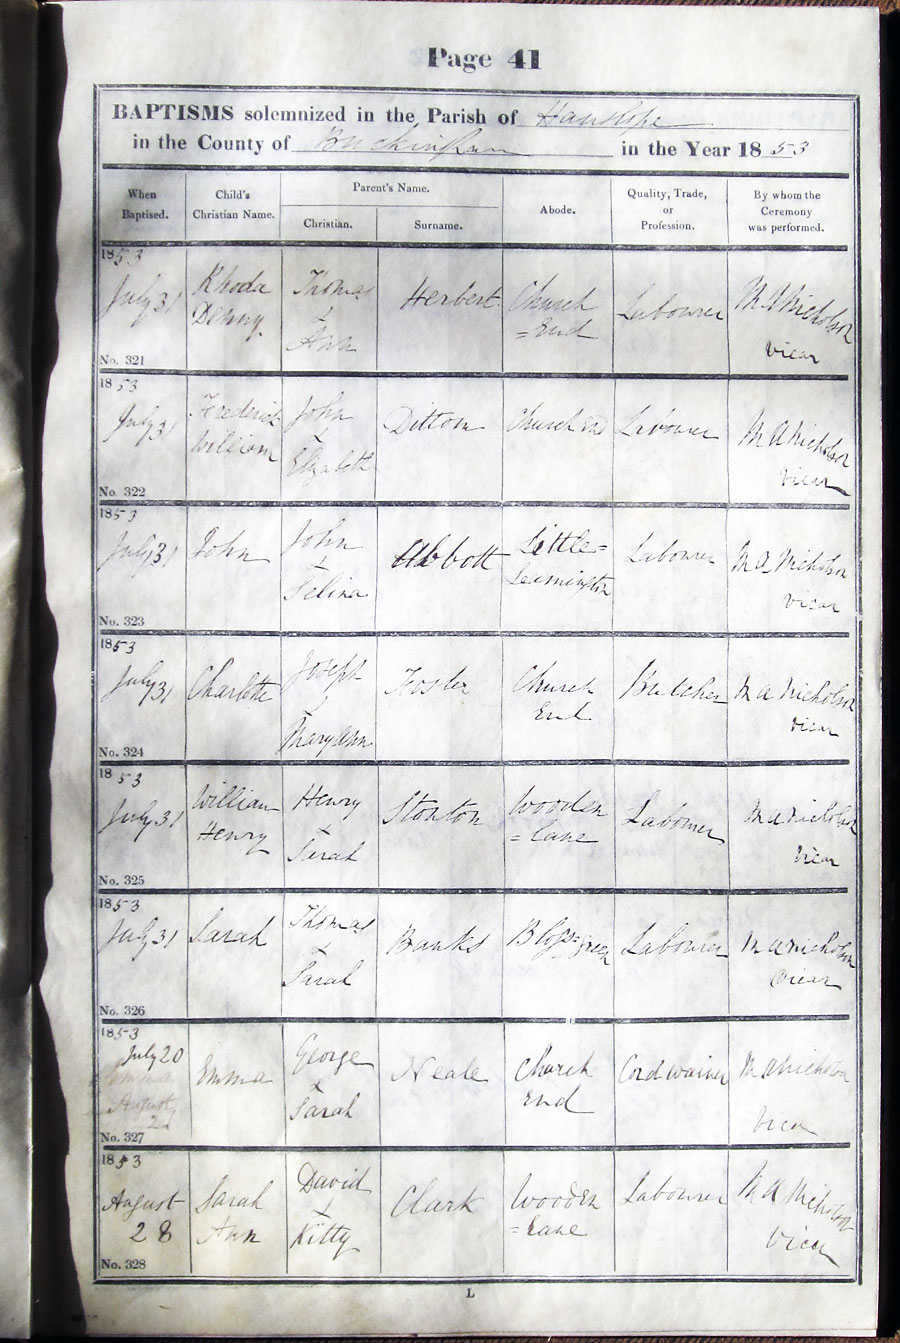 Page 41
BAPTISMS solemnized in the Parish of Hanslope
in the County of Buckingham in the Year 1853
When Baptised.
Child's Christian Name.
Parent's Name.
Christian.
Surname.
Abode.
Quality, Trade, or Profession.
By whom the Ceremony was performed.
1853
July 31
No. 321
Rhoda
Denny
Thomas
&
Ann
Herbert
Church
=End
Labourer
M A Nicholson
Vicar
1853
July 31
No. 322
Frederick
William
John
&
Elizabeth
Dittom
Church End
Labourer
M A Nicholson
Vicar
1853
July 31
No. 323
John
John
&
Selina
Abbott
Little=
Leamington
Labourer
M A Nicholson
Vicar
1853
July 31
No. 324
Charlotte
Joseph
&
Mary Ann
Foster
Church
End
Butcher
M A Nicholson
Vicar
1853
July 31
No. 325
William
Henry
Henry
&
Sarah
Stonton
Wooden
=Lane
Labourer
M A Nicholson
Vicar
1853
July 31
No. 326
Sarah
Thomas
&
Sarah
Banks
Labourer
M A Nicholson
Vicar
1853
July 20
Emma
August
No. 327
Emma
George
&
Sarah
Neale
Church
End
Cordwainer
M A Nicholson
Vicar
1853
August
28
No. 328
Sarah
Ann
David
&
Kitty
Clark
Wooden
=Lane
Labourer
M A Nicholson
Vicar
L